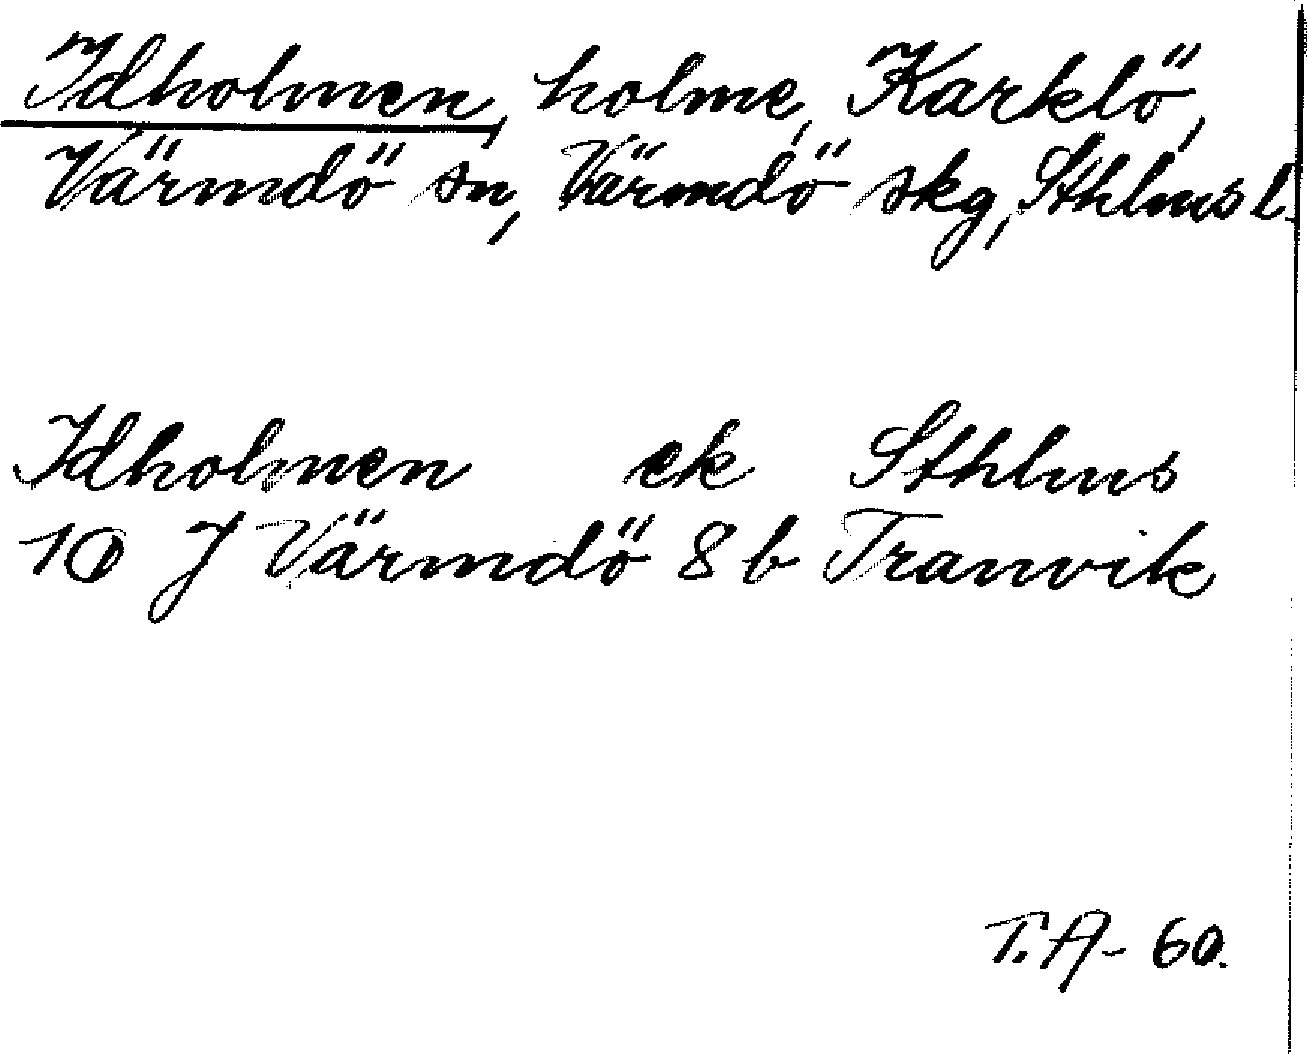 Idholmen, holme, Karklö,
Värmdö sn, Värmdö skg, Sthlms l.
Idholmen ek Sthlms
10 J Värmdö 8 b Tranvik
T.A- 60.